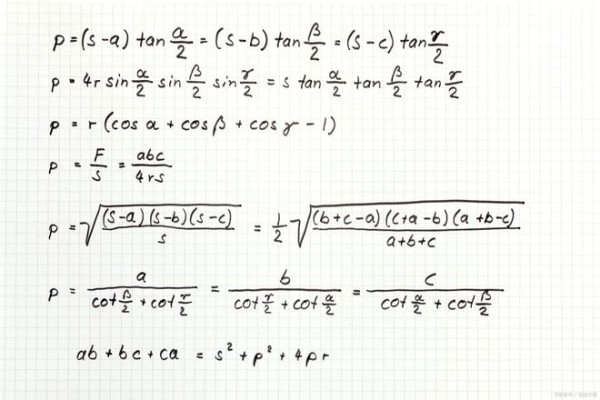 ρ = (s-a) tan α/2 = (s-b) tan β/2 = (s-c) tan γ/2
ρ = 4r sin α/2 sin β/2 sin γ/2 = s tan α/2 tan β/2 tan γ/2
ρ = r (cos α + cos β + cos γ - 1)
ρ = F/s = abc/4rs
ρ = √((s-a)(s-b)(s-c)/s) = 1/2 √((b+c-a)(c+a-b)(a+b-c)/a+b+c)
ρ = a/(cot β/2 + cot γ/2) = b/(cot γ/2 + cot α/2) = c/(cot α/2 + cot β/2)
ab + bc + ca = s² + ρ² + 4ρr